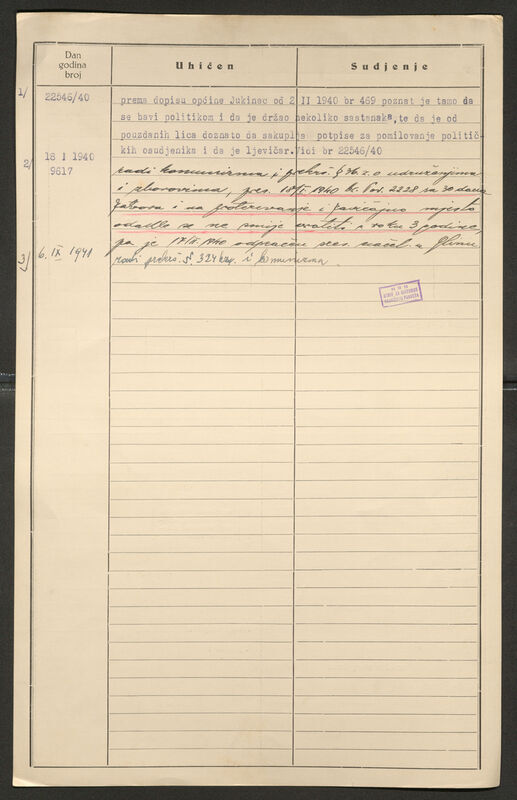 Dan
godina
broj
Uhićen
Sudjenje
1/
22546/40
prema dopisu općine Jukinac od 2 II 1940 br 469 poznat je tamo da
se bavi politikom i da je držao nekoliko sastanaka, te da je od
pouzdanih lica doznato da sakuplja potpise za pomilovanje politič-
kih osudjenika i da je ljevičar. Vidi br 22546/40
2/
18 I 1940
9617
radi komunizma i prekrš. § z. o udruženjima
i zborovima, pres. 18/I. 1940 br. Pov. 2228 sa 30 dana
zatvora i na proterivanje i zavičajno mjesto
odakle se ne smije vratiti u roku 3 godine,
pa je 17/II. 1940 odpraćen sres. načel. u Glinu
3)
6. IX 1941
radi prekrš. §. 324 kzp. i komunizma.